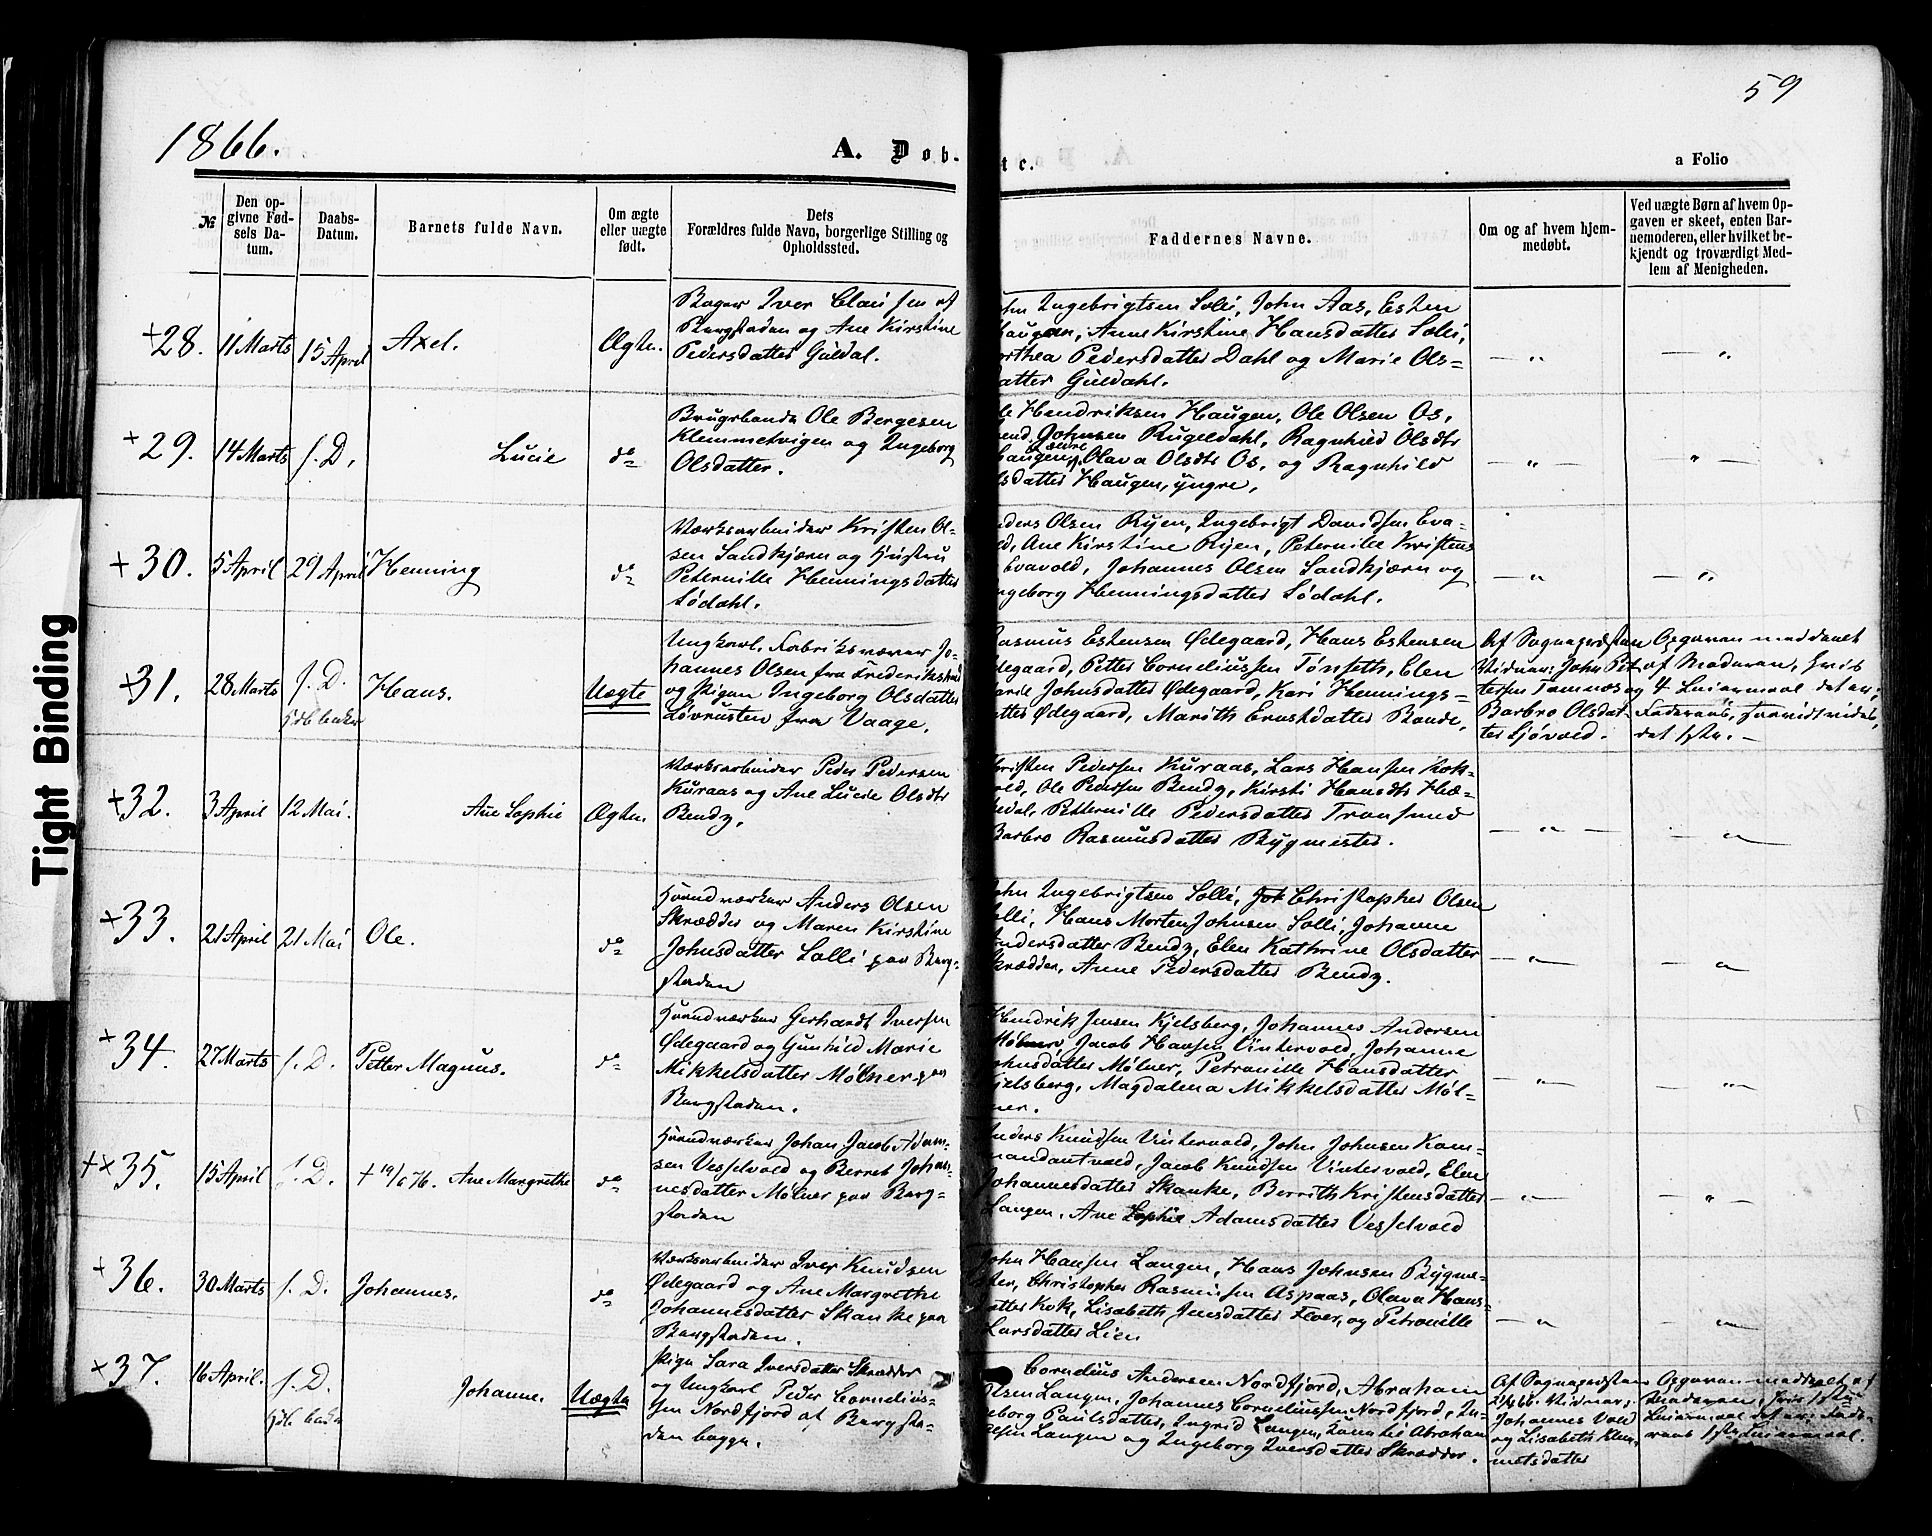 59
1866.
A. Døb-
te.
a Folio
№
Den op-
givne Fød-
sels Da-
tum.
Daabs-
Datum.
Barnets fulde Navn.
Om ægte
eller uægte
født.
Dets
Forældres fulde Navn, borgerlige Stilling og
Opholdssted.
Faddernes Navne.
Om og af hvem hjem-
medøbt.
Ved uægte Børn af hvem Op-
gaven er skeet, enten Bar-
nemoderen, eller hvilket be-
kjendt og troværdigt Med-
lem af Menigheden.
+28. 11 Marts 15 April Axel. Ægte.
Bager Iver Clausen af
Bergstaden og Ane Kirstine
Pedersdatter Guldal.
hn Ingebrigtsen Solli, John Aas, Esten
Haugen, Anne Kirstine Hansdatter Solli,
orthea Pedersdatter Dahl og Marie Ols-
atter Guldahl.
— „ — „
+29. 14 Marts s. D. Lucie do
Brugsbonde Ole Bergesen
Klemmetvigen og Ingeborg
Olsdatter.
le Hendriksen Haugen, Ole Olsen Os,
end. Johnsen Rugeldahl, Ragnhild Olsdtr
augen, Olava Olsdtr Os, og Ragnhild
lsdatter Haugen, yngre,
— „ — „ —
+30. 5 April 29 April Henning do
Værksarbeider Kristen Ol-
sen Sandkjærn og Hustru
Peternille Henningsdatter
Lødahl.
nders Olsen Ryen, Ingebrigt Davidsen Eva-
ld, Ane Kirstine Ryen, Peternille Kristens
Evavold, Johannes Olsen Sandkjærn og
ngeborg Henningsdatter Lødahl.
— „ — „
+31. 28 Marts s. D. Hans. Uægte
Ungkarl, Fabriksvæver Jo-
hannes Olsen fra Frederikstad
og Pigen Ingeborg Olsdatter
Løvrusten fra Vaage.
Rasmus Estensen Ødegaard, Hans Estensen
degaard, Petter Corneliussen Tønseth, Elen
Johnsdatter Ødegaard, Kari Hennings-
tter Ødegaard, Marith Erustdatter Bonde,
Af Sognepræsten
Vidner: John Pet-
tersen Tamnes og
Barbro Olsdat-
ter Sjøvold.
Opgaven meddelt
af Moderen, hvis
4 Leiermaal det er;
Faderens, saavidt vides,
det 1ste. —
+32. 3 April 12 Mai. Ane Sophie Ægte.
Værksarbeider Peder Pedersen
Kuraas og Ane Lucie Olsdtr
Bendz,
hristen Pedersen Kuraas, Lars Hansen Kok-
Ole Pedersen Bendz, Kirsti Hansdtr Hæ-
dal, Petternille Pedersdatter Tronsmed
Barbro Rasmusdatter Bygmester.
— „ — „
+33. 21 April 21 Mai Ole. do
Haandværker Anders Olsen
Skrædder og Maren Kirstine
Johnsdatter Solli paa Berg-
staden
ohn Ingebrigtsen Solli, Christopher Olsen
olli, Hans Morten Johnsen Solli, Johanne
Andersdatter Bendz, Elen Kathrine Olsdatter
Skrædder, Anne Pedersdatter Bendz.
— „ — „
+34. 27 Marts s. D. Petter Magnus. do
Haandværker Gerhardt Iversen
Ødegaard og Gunhild Marie
Mikkelsdatter Mølner paa
Bergstaden.
Hendrik Jensen Kjelsberg, Johannes Andersen
Mølner, Jacob Hansen Vintervold, Johanne
ohnsdatter Mølner, Petronille Hansdatter
Kjelsberg, Magdalena Mikkelsdatter Møl-
ner.
— „ — „
+×35. 15 April s. D. + 19/6 76. Ane Margrethe do
Haandværker Johan Jacob Adam-
sen Vesselvold og Berret Johan-
nesdatter Mølner paa Berg-
staden
Anders Knudsen Vintervold, John Johnsen Kom-
mandantvold, Jacob Knudsen Vintervold, Elen
Johannesdatter Skanke, Berrith Kristensdatter
Langen, Ane Sophie Adamsdatter Vesselvold
— „ — „
+36. 30 Marts s. D. Johannes. do
Værksarbeider Iver Knudsen
Ødegaard og Ane Margrethe
Johannesdatter Skanke paa
Bergstaden.
John Hansen Langen, Hans Johnsen Bygme-
ster, Christopher Rasmusen Aspaas, Olava Hans-
datter Kok, Lisabeth Jensdatter Fever, og Petronille
Larsdatter Lien
— „ — „
+37. 16 April. s. D. Johanne. Uægte
Pige Sara Iversdatter Skrædder
og Ungkarl Peder Cornelius-
sen Nordfjord af Bergsta-
den begge.
Cornelius Andersen Nordfjord, Abraham
Olsen Langen, Johannes Corneliussen Nordfjord, In-
geborg Paulsdatter, Ingrid Langen, Abraham
sen Langen og Ingeborg Iversdatter Skrædder.
Af Sognepræsten
Vidner:
Johannes Vold
og Lisabeth Klem-
metsdatter
Opgaven meddelt af
Moderen, hvis 1ste
Leiermaal det er; Fade-
rens 1ste Leiermaal.
Tight Binding